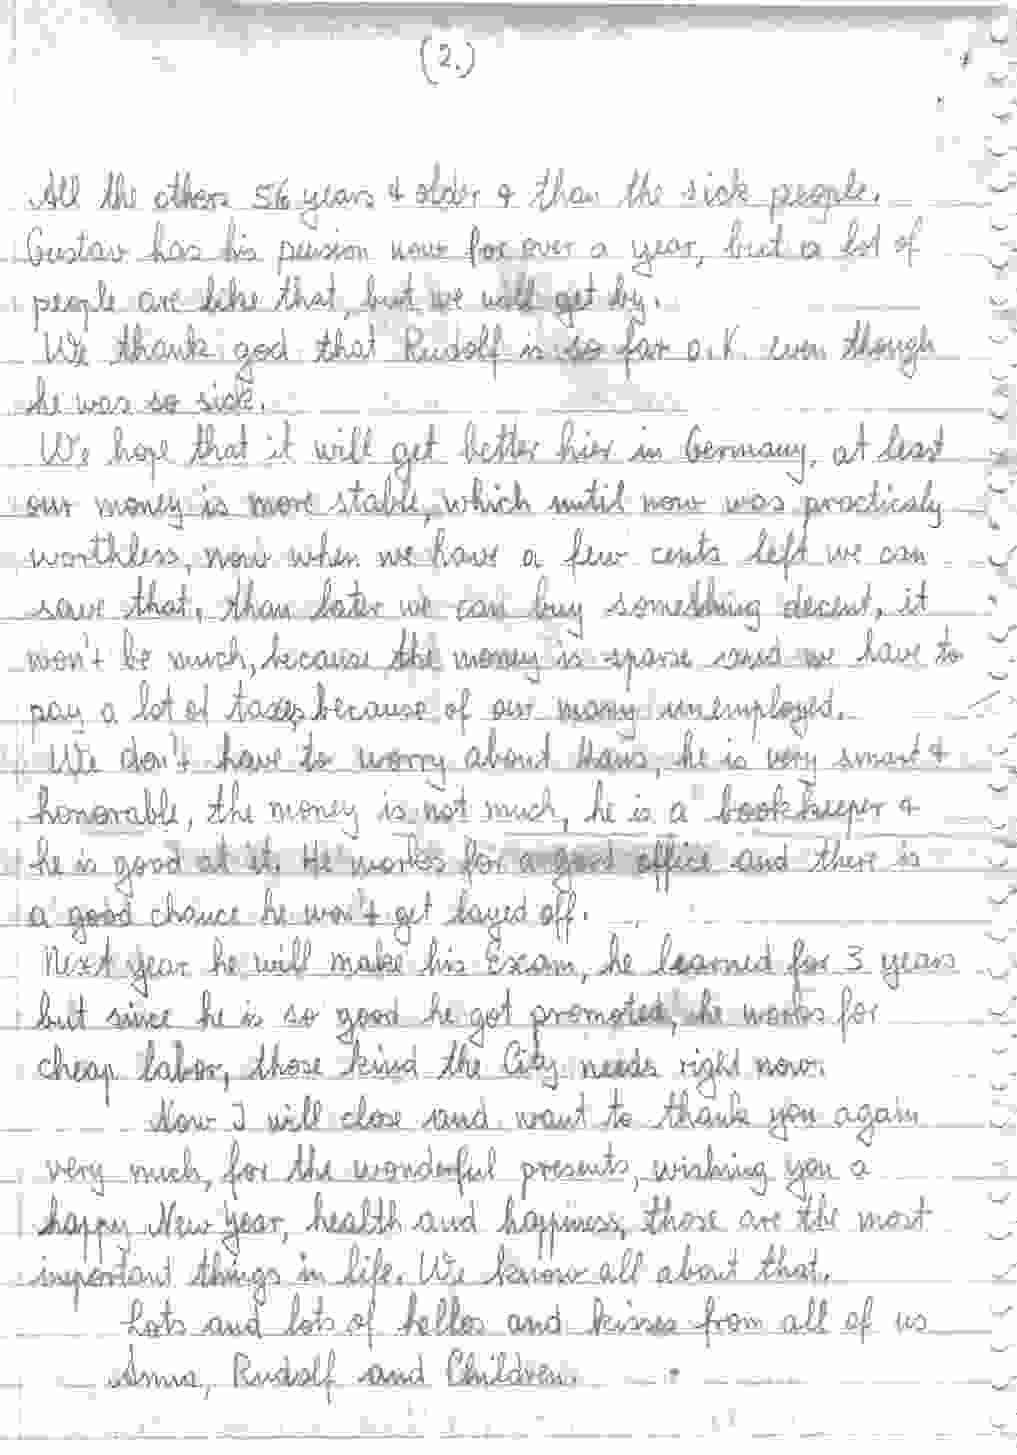 (2.)
All the others 56 years & older & than the sick people.
Gustav has his pension now for over a year, but a lot of
people are like that, but we will get by.
We thank god that Rudolf is so far o.K. even though
he was so sick.
We hope that it will get better hier in Germany, at least
our money is more stable, which until now was practicaly
worthless, now when we have a few cents left we can
save that, than later we can buy something decent, it
won't be much, because the money is sparse and we have to
pay a lot of taxes because of our many unemployed.
We don't have to worry about Hans, he is very smart &
honorable, the money is not much, he is a bookkeeper &
he is good at it. He works for a good office and there is
a good chance he won't get layed off.
Next year he will make his Exam, he learned for 3 years
but since he is so good he got promoted, he works for
cheap labor, those kind the City needs right now.
Now I will close and want to thank you again
very much, for the wonderful presents, wishing you a
happy New Year, health and happiness, those are the most
important things in life. We know all about that.
Lots and lots of hellos and kisses from all of us
Anna, Rudolf and Children.